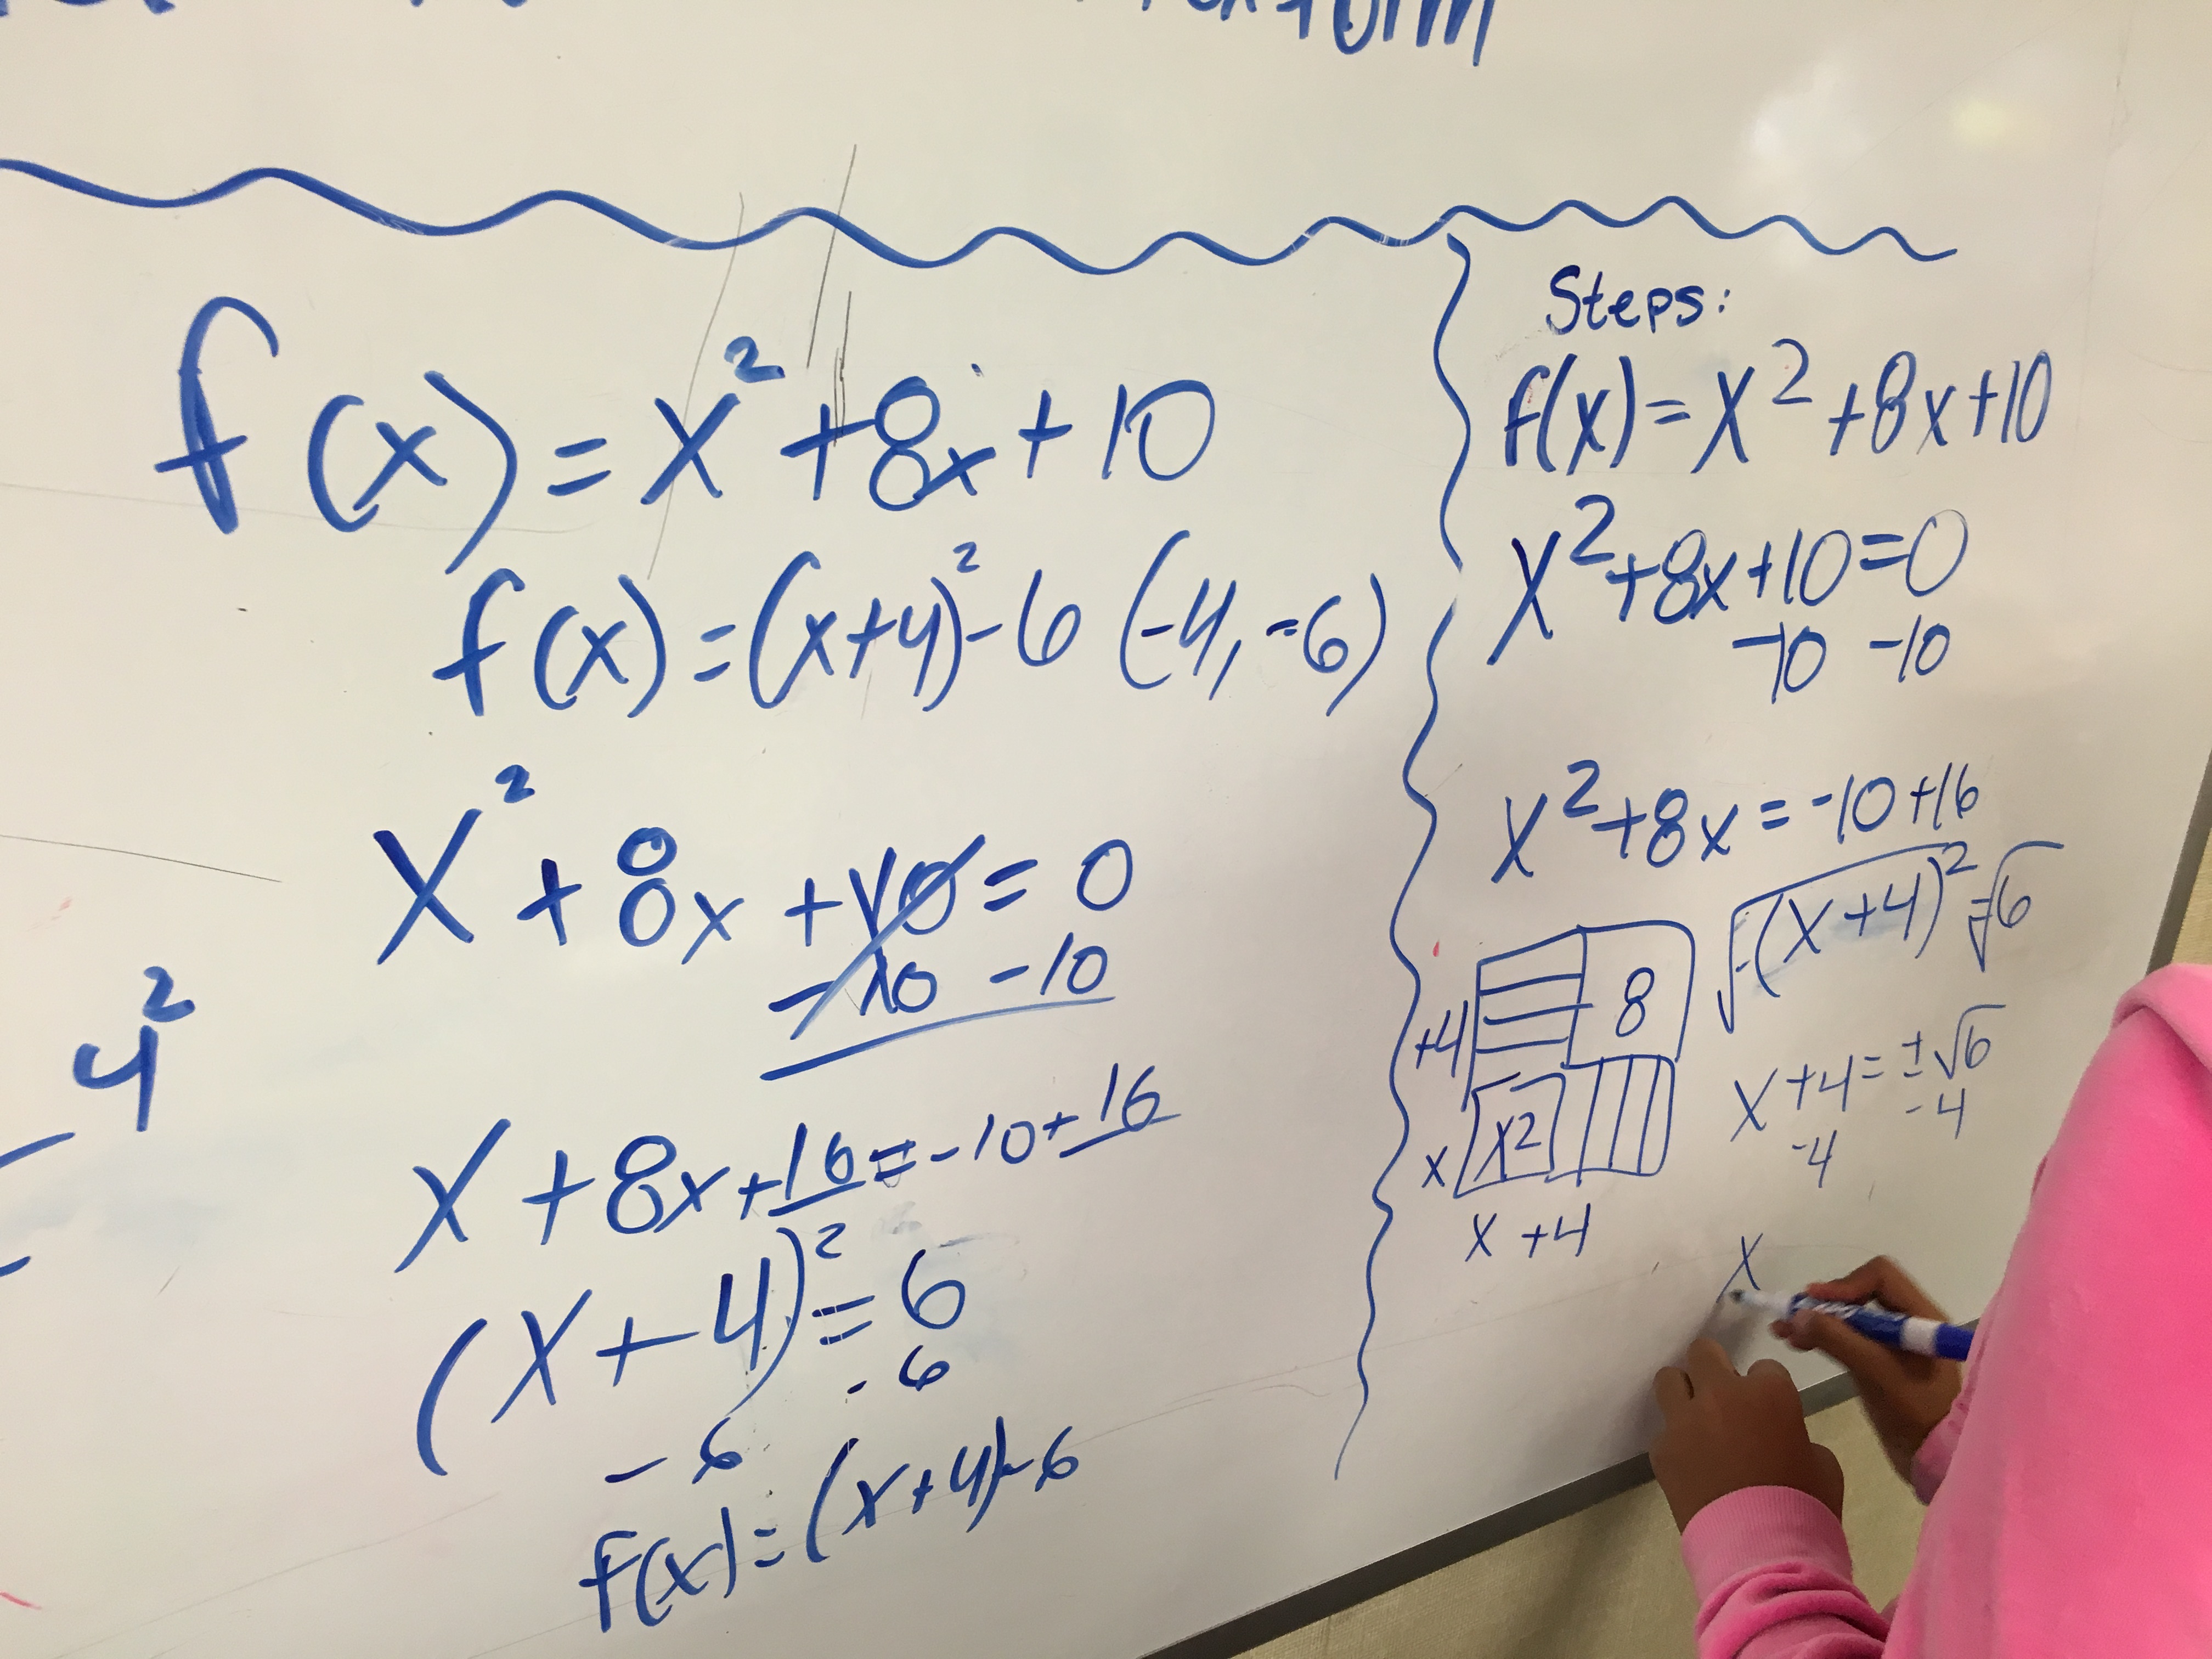 f(x) = x² + 8x + 10
f(x) = (x+4)² - 6 (-4, -6)
x² + 8x + 10 = 0
- 10 - 10
4²
x + 8x + 16 = -10 + 16
(x + 4)² = 6
- 6 - 6
f(x) = (x+4) - 6
Steps:
f(x) = x² + 8x + 10
x² + 8x + 10 = 0
-10 -10
x² + 8x = -10 + 16
√(x+4)² = √6
8
+4
x²
x
x +4
x + 4 = ± √6
-4 -4
x